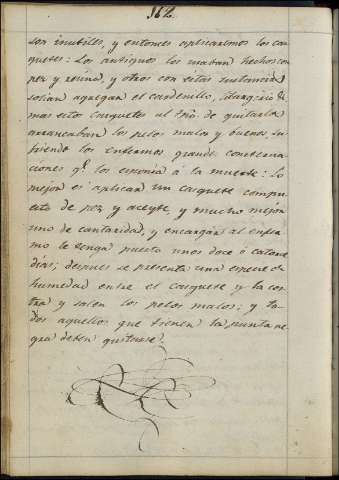 162.
son inutiles, y entonces aplicaremos los cas
quetes: Los antiguos los usaban hechos con
pez y resina, y otros con estas sustancias
solian agregar el cardenillo, litargirio &
mas estos casquetes al tpo. de quitarlos
arrancaban los pelos malos y buenos, su
friendo los enfermos grandes consterna
ciones qe. los exponia à la muerte: Lo
mejor es aplicar un casquete compu
esto de pez y aceyte, y mucho mejor
uno de cantarida, y encargar al enfer
mo le tenga puesto unos doce ó catorce
dias; despues se presenta una especie de
humedad entre el casquete y la cos
tra y salen los pelos malos; y to
dos aquellos que tienen la punta ne
gra deben quitarse.